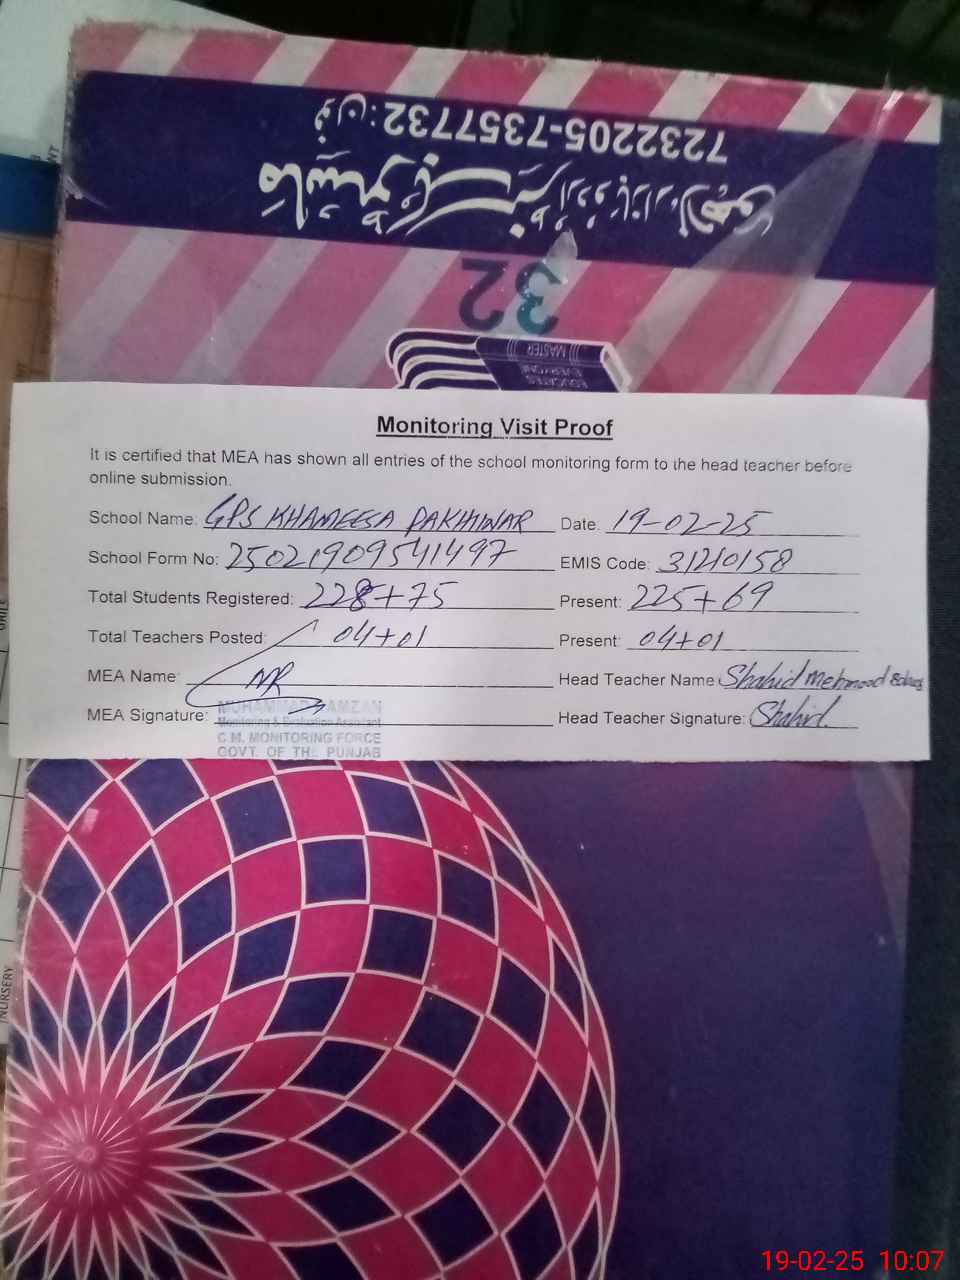 فون: 7232205-7357732
32
MASTER
EDUCATES
EVERYONE
Monitoring Visit Proof
It is certified that MEA has shown all entries of the school monitoring form to the head teacher before
online submission.
School Name: GPS KHAMEESA PAKHIWAR Date: 19-02-25
School Form No: 25021909541497 EMIS Code: 31210158
Total Students Registered: 228+75 Present: 225+69
Total Teachers Posted: 04+01 Present: 04+01
MEA Name: MR Head Teacher Name Shahid Mehmood
MEA Signature: Head Teacher Signature: Shahid
MUHAMMAD RAMZAN
Monitoring & Evaluation Assistant
C.M. MONITORING FORCE
GOVT. OF THE PUNJAB
NURSERY
19-02-25 10:07